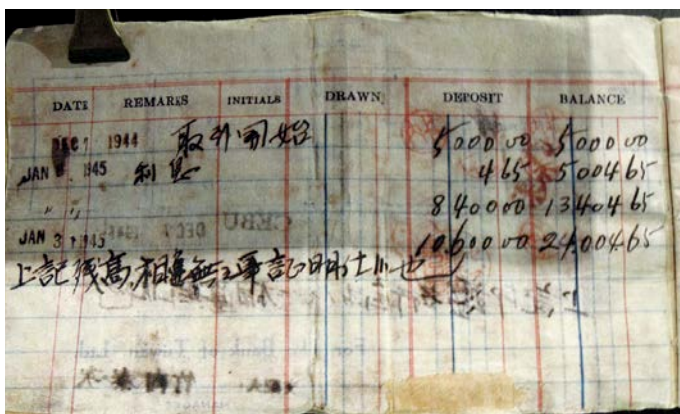 DATE REMARKS INITIALS DRAWN DEPOSIT BALANCE
DEC 1 1944 取引開始 5000 00 5000 00
JAN 1945 利息 4 65 5004 65
" " 8400 00 13404 65
JAN 3 1945 10600 00 24004 65
上記残高相違無之事証明仕候也
CEBU DEC
For The Bank of Taiwan Ltd.
MANAGER